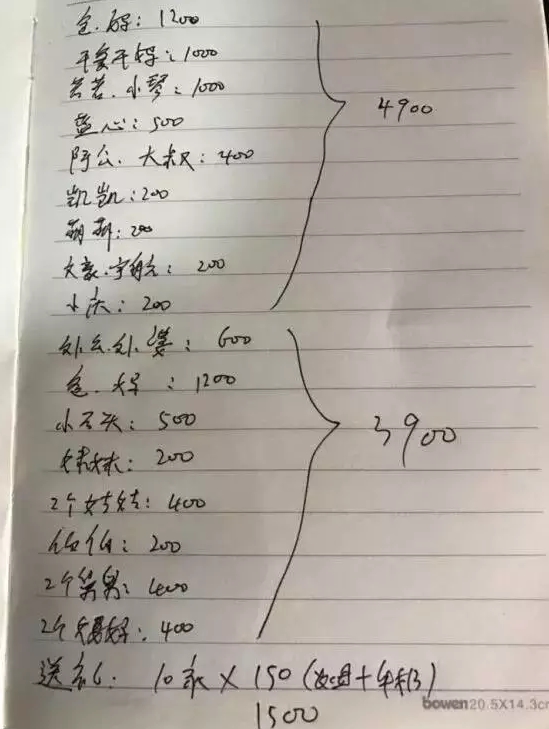 爸.妈: 1200
干爸干妈: 1000
芸芸.小琴: 1000
蓝心: 500
阿公.大叔: 400
凯凯: 200
萌萌: 200
大豪.宇航: 200
小沃: 200
4900
外公.外婆: 600
爸.妈: 1200
小石头: 500
妹妹: 200
2个姑姑: 400
伯伯: 200
2个舅舅: 400
2个舅妈: 400
3900
送礼: 10家×150(烟+年糕)
1500
bowen 20.5X14.3c